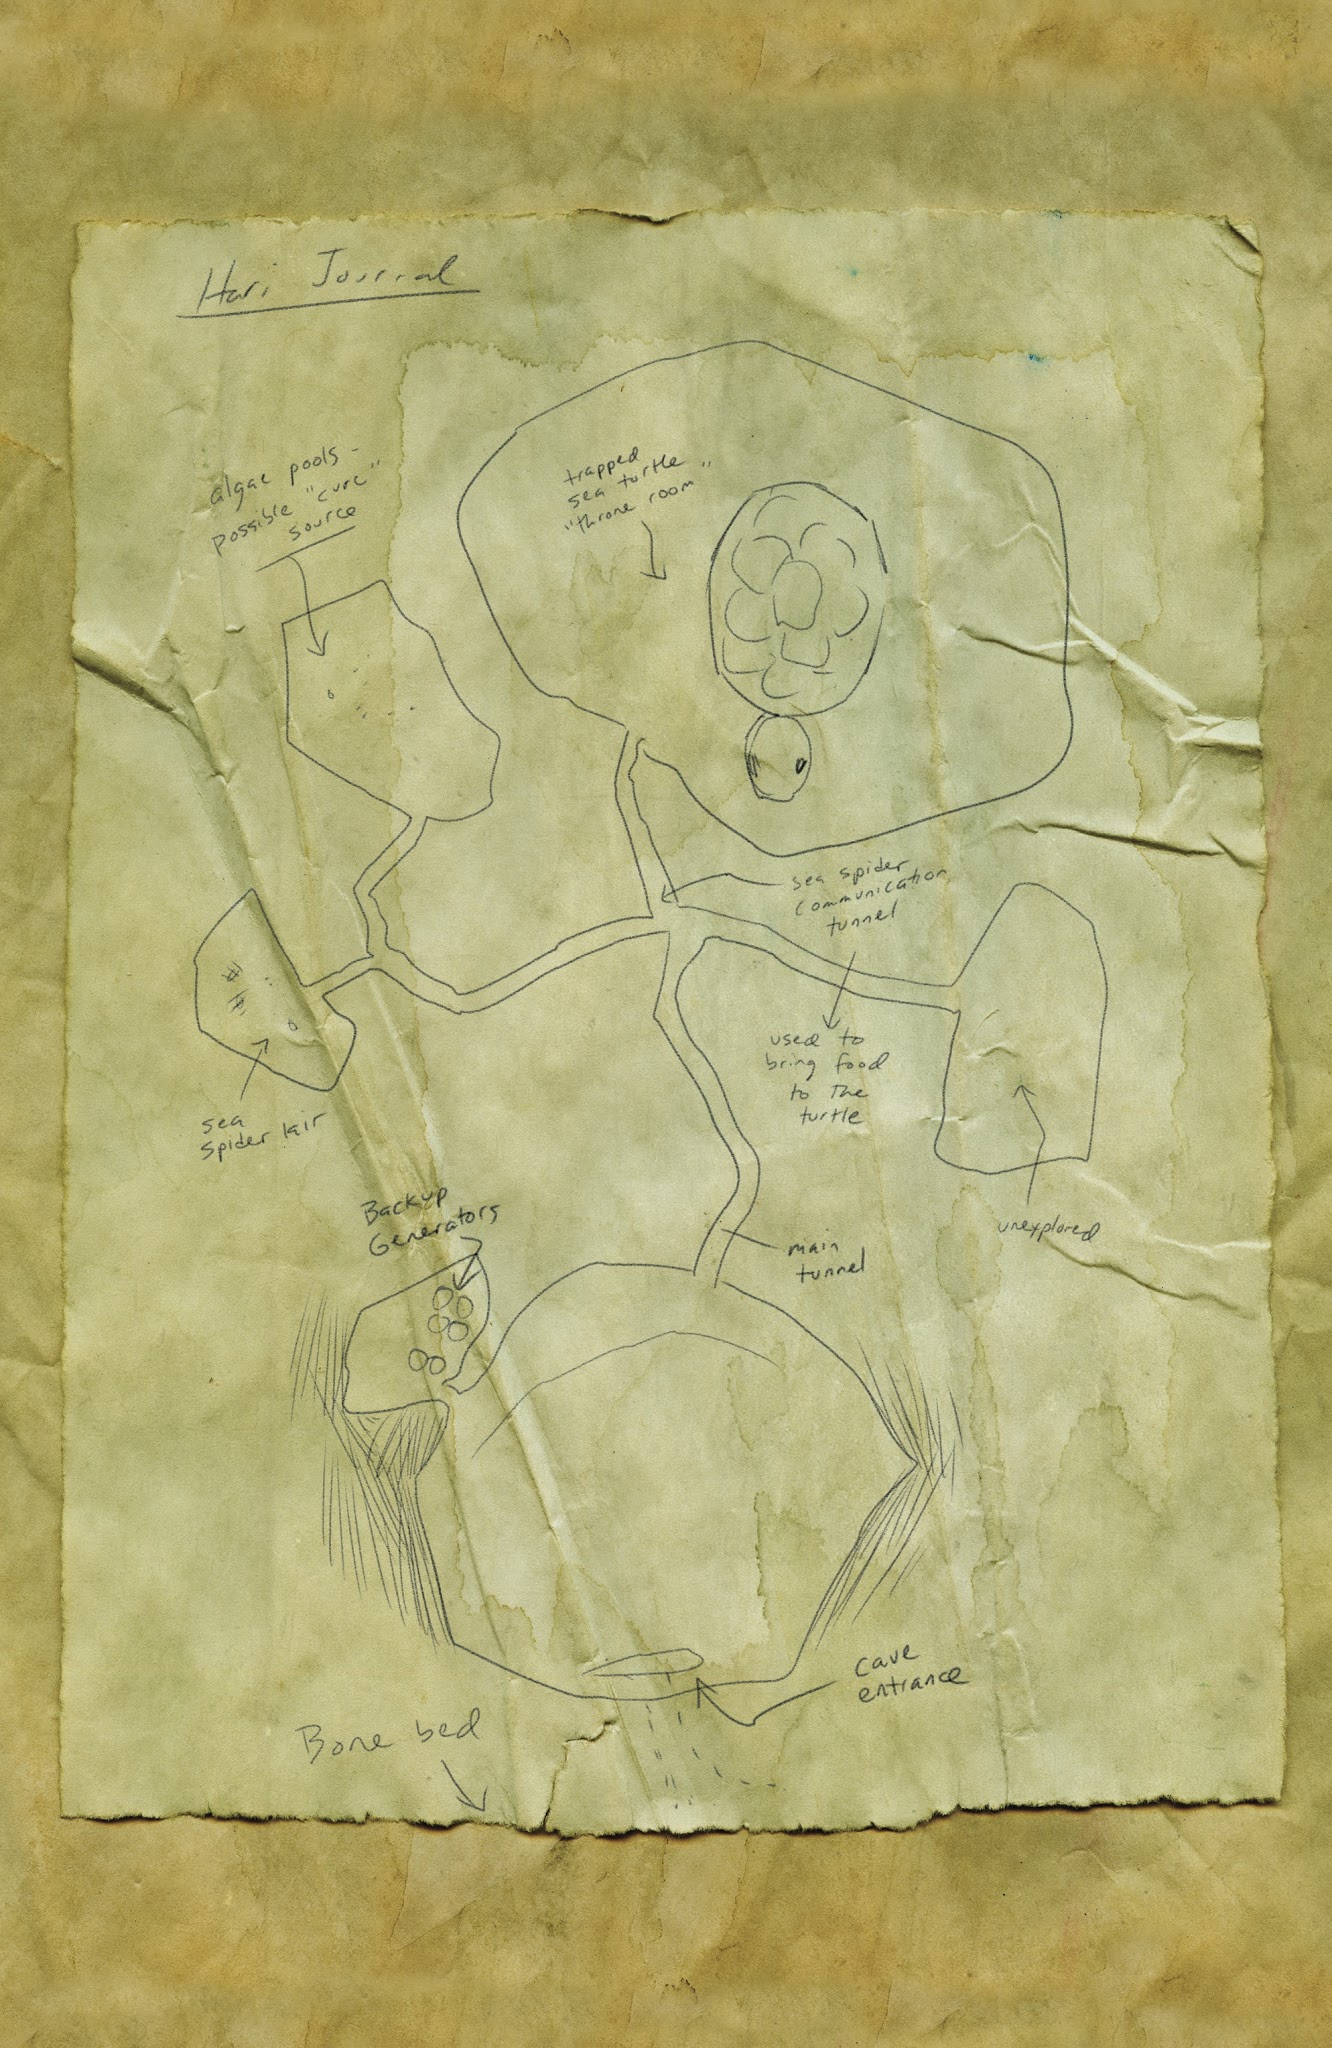 Hari Journal
algae pools -
possible "cure"
source
trapped
sea turtle
"throne room"
sea spider
communication
tunnel
used to
bring food
to the
turtle
sea
spider lair
unexplored
Backup
Generators
main
tunnel
cave
entrance
Bone bed